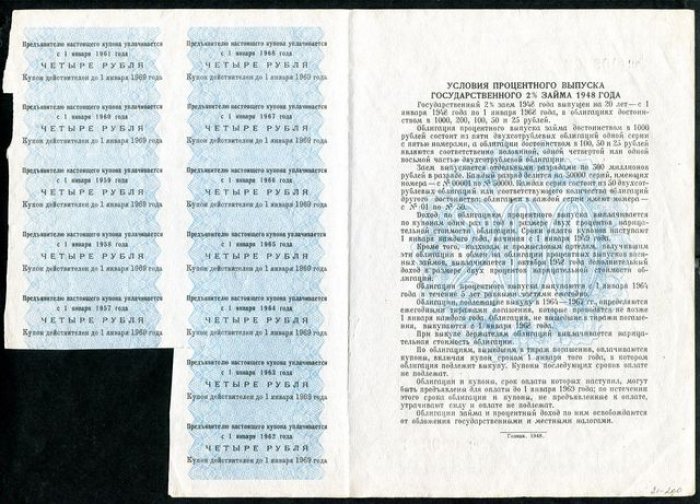 Предъявителю настоящего купона уплачивается
с 1 января 1961 года
ЧЕТЫРЕ РУБЛЯ
Купон действителен до 1 января 1969 года
Предъявителю настоящего купона уплачивается
с 1 января 1960 года
ЧЕТЫРЕ РУБЛЯ
Купон действителен до 1 января 1969 года
Предъявителю настоящего купона уплачивается
с 1 января 1959 года
ЧЕТЫРЕ РУБЛЯ
Купон действителен до 1 января 1969 года
Предъявителю настоящего купона уплачивается
с 1 января 1958 года
ЧЕТЫРЕ РУБЛЯ
Купон действителен до 1 января 1969 года
Предъявителю настоящего купона уплачивается
с 1 января 1957 года
ЧЕТЫРЕ РУБЛЯ
Купон действителен до 1 января 1969 года
Предъявителю настоящего купона уплачивается
с 1 января 1968 года
ЧЕТЫРЕ РУБЛЯ
Купон действителен до 1 января 1969 года
Предъявителю настоящего купона уплачивается
с 1 января 1967 года
ЧЕТЫРЕ РУБЛЯ
Купон действителен до 1 января 1969 года
Предъявителю настоящего купона уплачивается
с 1 января 1966 года
ЧЕТЫРЕ РУБЛЯ
Купон действителен до 1 января 1969 года
Предъявителю настоящего купона уплачивается
с 1 января 1965 года
ЧЕТЫРЕ РУБЛЯ
Купон действителен до 1 января 1969 года
Предъявителю настоящего купона уплачивается
с 1 января 1964 года
ЧЕТЫРЕ РУБЛЯ
Купон действителен до 1 января 1969 года
Предъявителю настоящего купона уплачивается
с 1 января 1963 года
ЧЕТЫРЕ РУБЛЯ
Купон действителен до 1 января 1969 года
Предъявителю настоящего купона уплачивается
с 1 января 1962 года
ЧЕТЫРЕ РУБЛЯ
Купон действителен до 1 января 1969 года
УСЛОВИЯ ПРОЦЕНТНОГО ВЫПУСКА
ГОСУДАРСТВЕННОГО 2% ЗАЙМА 1948 ГОДА
Государственный 2% заем 1948 года выпущен на 20 лет — с 1
января 1948 года по 1 января 1968 года, в облигациях достоин-
ством в 1000, 200, 100, 50 и 25 рублей.
Облигации процентного выпуска займа достоинством в 1000
рублей состоят из пяти двухсотрублевых облигаций одной серии
с пятью номерами, а облигации достоинством в 100, 50 и 25 рублей
являются соответственно половиной, одной четвертой или одной
восьмой частью двухсотрублевой облигации.
Заем выпускается отдельными разрядами по 500 миллионов
рублей в разряде. Каждый разряд делится на 50000 серий, имеющих
номера — с № 00001 по № 50000. Каждая серия состоит из 50 двухсот-
рублевых облигаций или из соответствующего количества облигаций
другого достоинства; облигации в каждой серии имеют номера —
с № 01 по № 50.
Доход по облигациям процентного выпуска выплачивается
по купонам один раз в год в размере двух процентов нарица-
тельной стоимости облигации. Сроки оплаты купонов наступают
1 января каждого года, начиная с 1 января 1953 года.
Кроме того, колхозам и промысловым артелям, получившим
эти облигации в обмен на облигации процентных выпусков воен-
ных займов, выплачивается 1 января 1968 года дополнительный
доход в размере двух процентов нарицательной стоимости об-
лигаций.
Облигации процентного выпуска выкупаются с 1 января 1964
года в течение 5 лет равными частями ежегодно.
Облигации, подлежащие выкупу в 1964—1967 гг., определяются
ежегодными тиражами погашения, которые проводятся не позже
1 января каждого года. Облигации, не вышедшие в тиражи погаше-
ния, выкупаются с 1 января 1968 года.
При выкупе держателям облигаций выплачивается нарица-
тельная стоимость облигации.
По облигациям, вышедшим в тираж погашения, оплачиваются
купоны, включая купон сроком 1 января того года, в котором
облигация подлежит выкупу. Купоны последующих сроков оплате
не подлежат.
Облигации и купоны, срок оплаты которых наступил, могут
быть предъявлены для оплаты до 1 января 1969 года; по истечении
этого срока облигации и купоны, не предъявленные к оплате,
утрачивают силу и оплате не подлежат.
Облигации займа и процентный доход по ним освобождаются
от обложения государственными и местными налогами.
Гознак. 1948.